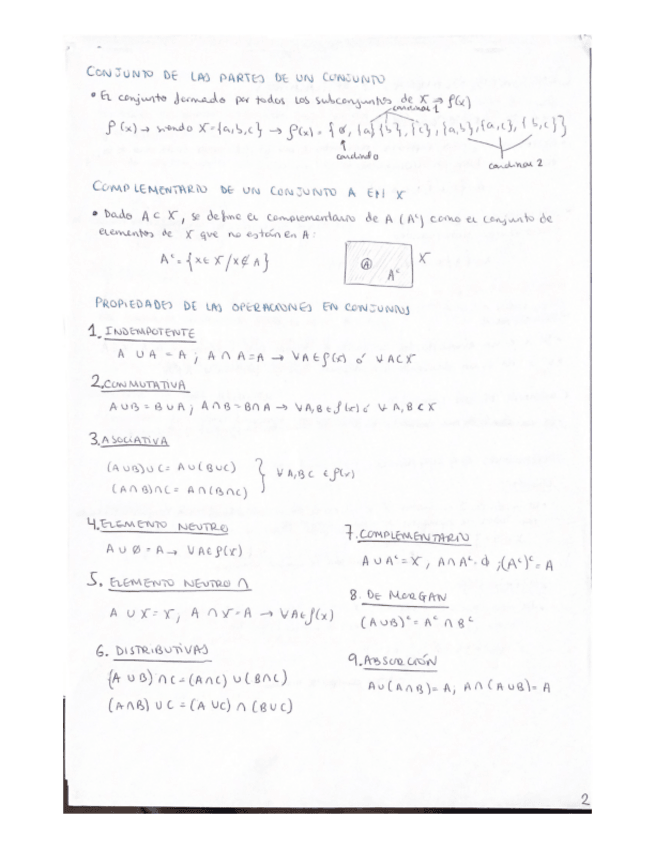 CONJUNTO DE LAS PARTES DE UN CONJUNTO
• El conjunto formado por todos los subconjuntos de X → ℘(x)
cardinal 1
℘(x) → siendo X={a,b,c} → ℘(x) = {∅, {a}{b},{c},{a,b},{a,c},{b,c}}
cardinal 0
cardinal 2
COMPLEMENTARIO DE UN CONJUNTO A EN X
• Dado A ⊂ X, se define el complementario de A (Aᶜ) como el conjunto de
elementos de X que no están en A:
Aᶜ = {x ∈ X / x ∉ A}
A Aᶜ X
PROPIEDADES DE LAS OPERACIONES EN CONJUNTOS
1. INDEMPOTENTE
A ∪ A = A ; A ∩ A = A → ∀A ∈ ℘(x) ó ∀A ⊂ X
2. CONMUTATIVA
A∪B = B∪A ; A∩B = B∩A → ∀A,B ∈ ℘(x) ó ∀ A,B ⊂ X
3. ASOCIATIVA
(A∪B)∪C = A∪(B∪C)
(A∩B)∩C = A∩(B∩C) } ∀ A,B,C ∈ ℘(x)
4. ELEMENTO NEUTRO
A ∪ ∅ = A → ∀A∈℘(X)
5. ELEMENTO NEUTRO ∩
A ∪ X = X, A ∩ X = A → ∀A∈℘(x)
6. DISTRIBUTIVAS
(A ∪ B) ∩ C = (A∩C) ∪ (B∩C)
(A∩B) ∪ C = (A ∪ C) ∩ (B∪C)
7. COMPLEMENTARIO
A ∪ Aᶜ = X, A ∩ Aᶜ = ∅ ; (Aᶜ)ᶜ = A
8. DE MORGAN
(A∪B)ᶜ = Aᶜ ∩ Bᶜ
9. ABSORCIÓN
A∪(A∩B) = A, A∩(A∪B) = A
2